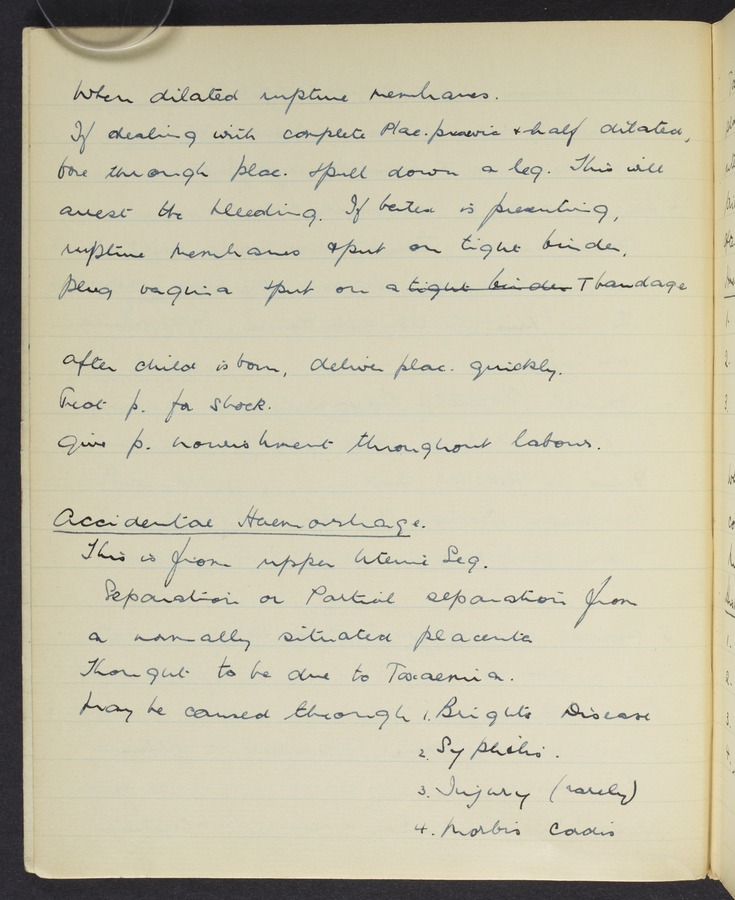 When dilated rupture membranes.
If dealing with complete Plac. praevia & half dilated,
bore through plac. & pull down a leg. This will
arrest the bleeding. If vertex is presenting,
rupture membranes & put on tight binder,
plug vagina & put on a tight binder T bandage
after child is born, deliver plac. quickly.
Treat p. for shock.
Give p. nourishment throughout labour.
Accidental Haemorrhage.
This is from upper uterine Seg.
Separation or Partial separation from
a normally situated placenta
Thought to be due to Toxaemia.
May be caused through 1. Brights Disease
2. Syphilis.
3. Injury (rarely)
4. Morbis Cordis